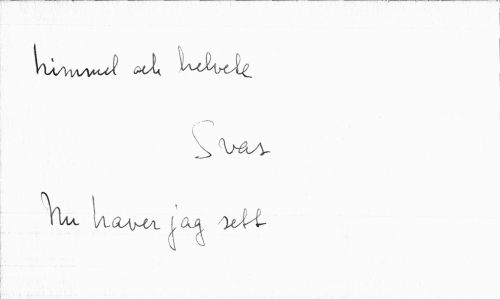 himmel och helvete
Svar
Nu haver jag sett